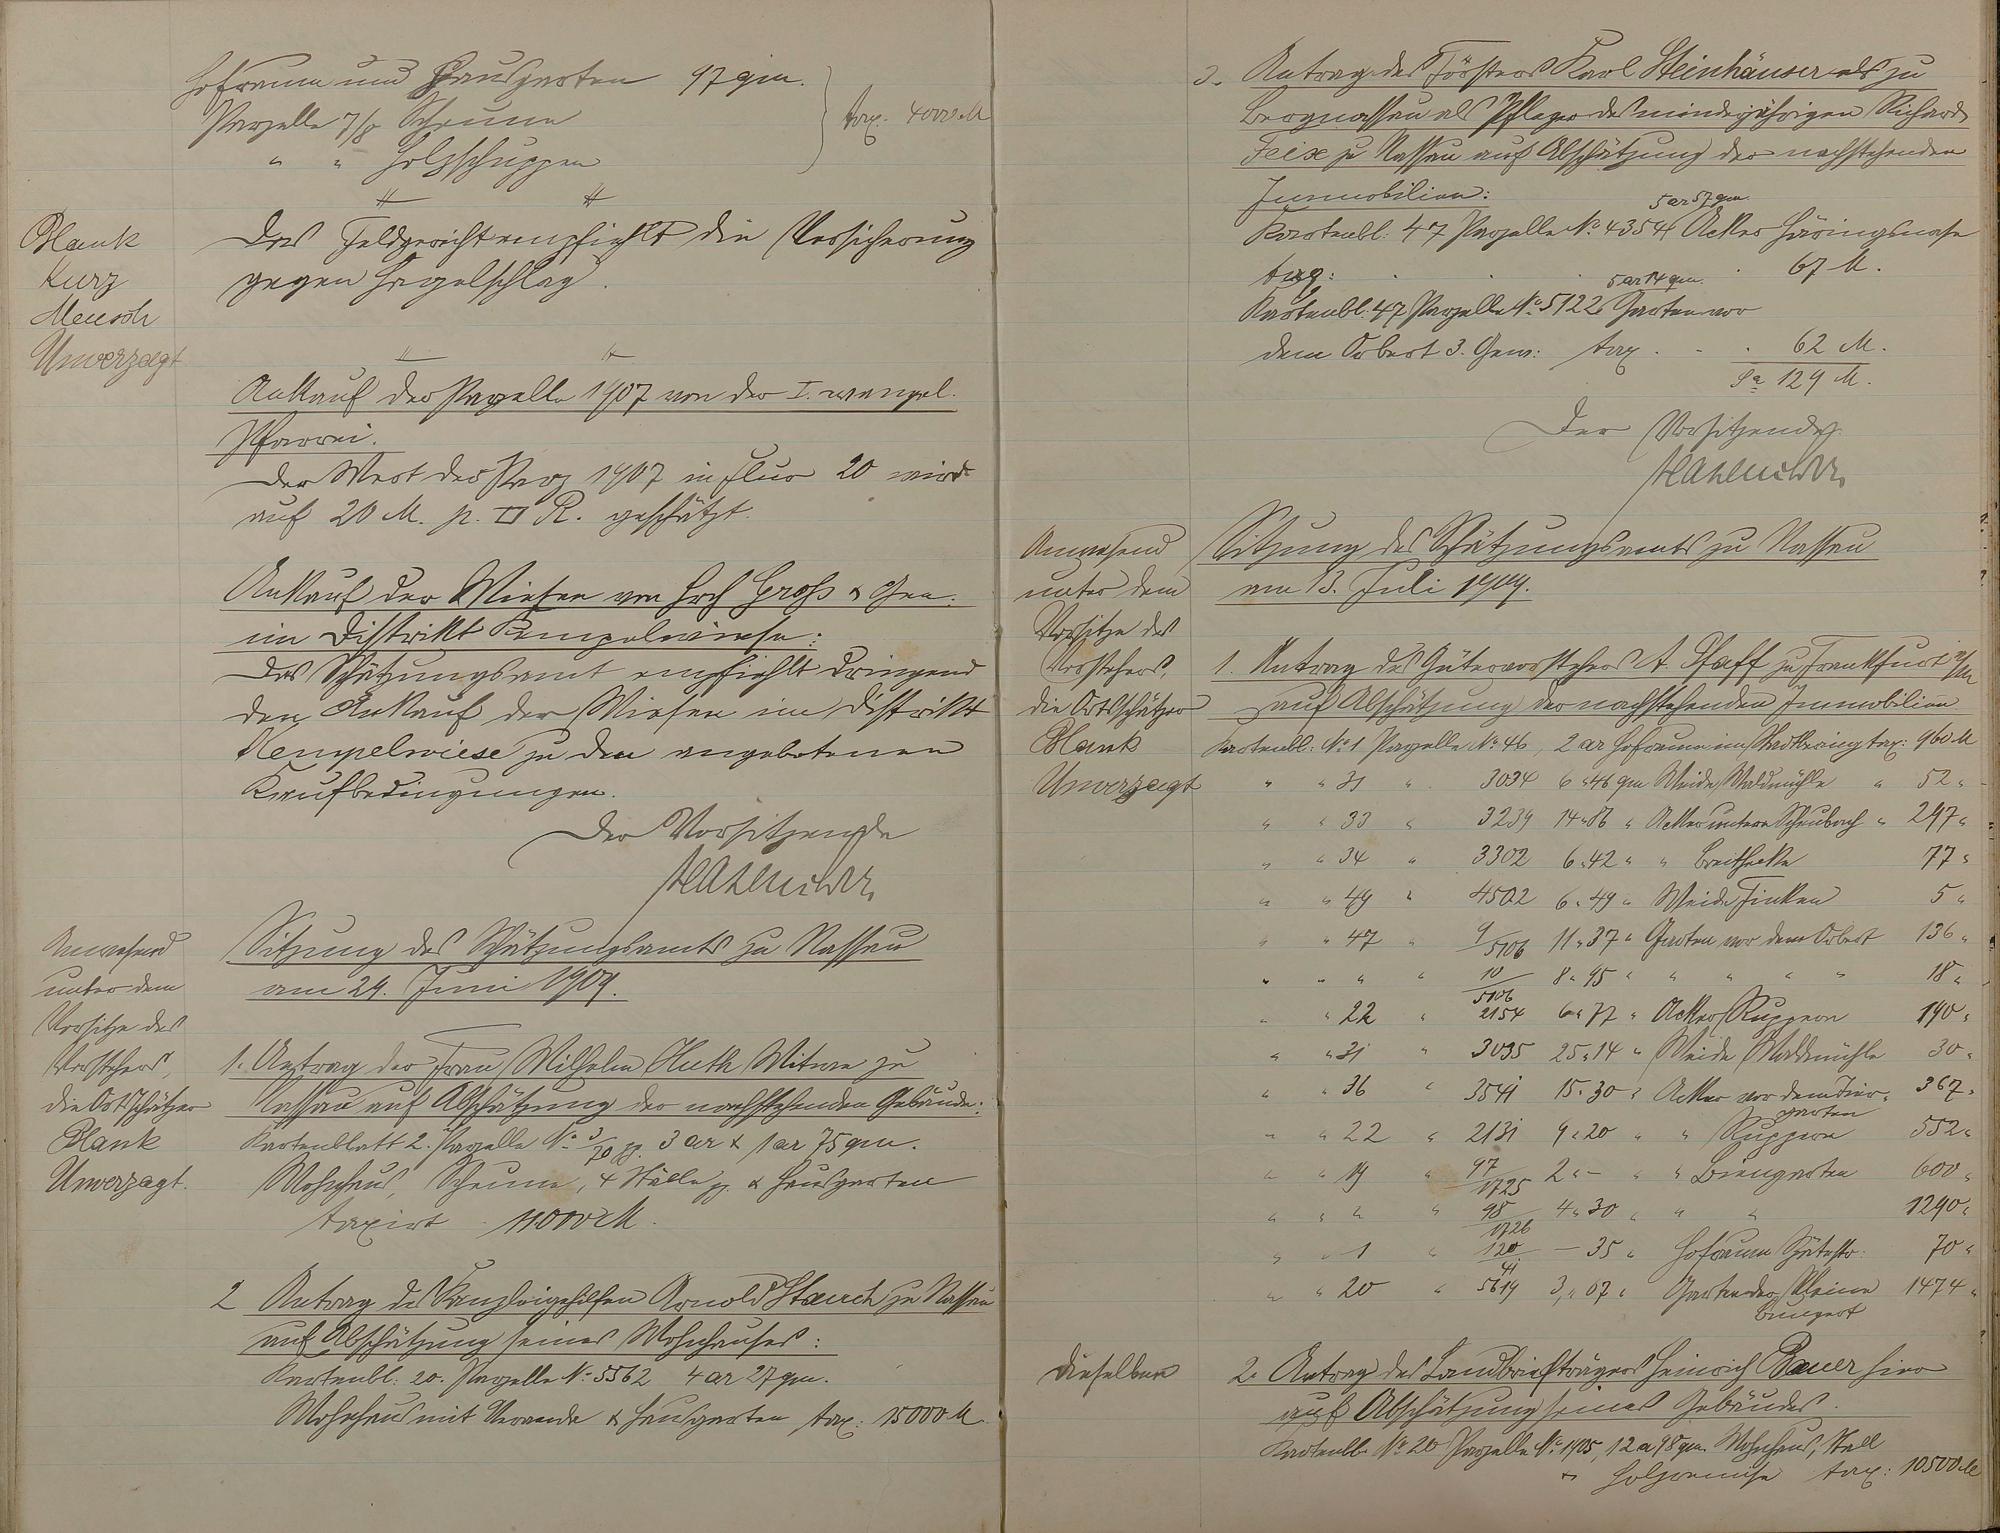 Hofraum und Hausgarten 97 qm.
Parzelle 7/8 Scheune
" " Holzschuppen
tax. 4000 M
Blank
Kurz
Mensch
Unverzagt
Das Feldgericht empfiehlt die Versicherung
gegen Hagelschlag.
Ankauf der Parzelle 1907 von der I. evangel.
Pfarrei.
Der Wert der Parz 1907 in Flur 20 wird
auf 20 M. p. □ R. geschätzt.
Ankauf der Wiesen von Hch Groß & Gen.
im Distrikt Kempelwiese:
Das Schätzungsamt empfiehlt dringend
den Ankauf der Wiesen im Distrikt
Kempelwiese zu den angebotenen
Kaufbedingungen.
Der Vorsitzende
Anwesend
unter dem
Vorsitze des
Vorstehers,
die Ortsschätzer
Blank
Unverzagt.
Sitzung des Schätzungsamts zu Nassau
am 24. Juni 1909.
1. Antrag der Frau Wilhelm Huth Witwe zu
Nassau auf Abschätzung der nachstehenden Gebäude:
Kartenblatt 2. Parzelle No 3/70 pp. 3 ar & 1 ar 75 qm.
Wohnhaus, Scheune, 4 Ställe pp. & Hausgarten
taxirt 11000 M.
2 Antrag des Kanzleigehilfen Arnold Stauch zu Nassau
auf Abschätzung seines Wohnhauses:
Kartenbl: 20. Parzelle No 5562 4 ar 27 qm.
Wohnhaus mit Veranda & Hausgarten tax: 15000 M.
3. Antrag des Försters Karl Steinhäuser als zu
Bergnassau als Pfleger des minderjährigen Richard
Feixe zu Nassau auf Abschätzung der nachstehenden
Immobilien:
5 ar 57 qm
Kartenbl: 47 Parzelle No 4354 Acker Häringsnase
tax: 67 M.
5 ar 14 qm.
Kartenbl: 47 Parzelle No 5122 Garten vor
dem Orbert 3. Gew: tax. 62 M.
Sa 129 M.
Der Vorsitzende:
Anwesend
unter dem
Vorsitze des
Vorstehers,
die Ortsschätzer
Blank
Unverzagt
Sitzung des Schätzungsamts zu Nassau
am 13. Juli 1909.
1. Antrag des Gütervorstehers A. Pfaff zu Frankfurt a/M
auf Abschätzung der nachstehenden Immobilien
Kartenbl: No 1 Parzelle No 46, 2 ar Hofraum im Stadtbering tax: 960 M
" " 31 " 3034 6 " 46 qm Weide Waldmühle " 52 "
" " 33 " 3239 14 " 86 " Acker untere Scheubach " 297 "
" " 34 " 3302 6 " 42 " " Breithecke 77 "
" " 49 " 4502 6 " 49 " Weide Finken 5 "
" " 47 " 9/5106 11 " 37 " Garten vor dem Orbert 136 "
" " " " 10/5106 8 " 95 " " " " " 18 "
" " 22 " 2154 6 " 77 " Acker Ruppern 190 "
" " 31 " 3035 25 " 14 " Weide Waldmühle 30 "
" " 36 " 3541 15 " 30 " Acker vor dem Tier- 367 "
garten
" " 22 " 2131 9 " 20 " " Ruppern 552 "
" " 19 " 97/1725 2 " - " " Biengarten 600 "
" " " " 98/1726 4 " 30 " " " 1290 "
" " 1 " 120/41 - 35 " Hofraum Späthestr. 70 "
" " 20 " 5619 3 " 07 " Garten der kleine 1474 "
Bungert
Dieselben
2. Antrag des Landbriefträgers Heinrich Bauer hier
auf Abschätzung seines Gebäudes.
Kartenbl. No 20 Parzelle No 1905, 12 a 98 qm. Wohnhaus, Stall
& Holzremise tax: 10500 M